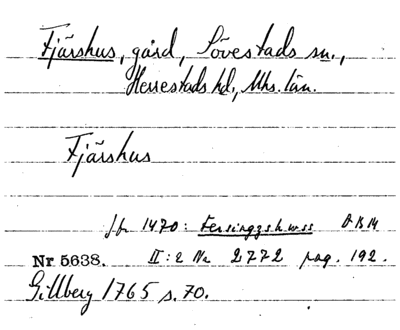 Fjärshus, gård, Sövestads sn.,
Herrestads hd., Mhs. län.
Fjärshus
jfr 1470: Fersinggshwss
Nr 5638. II:2 Nr 2772 pag. 192.
Gillberg 1765 s. 70.